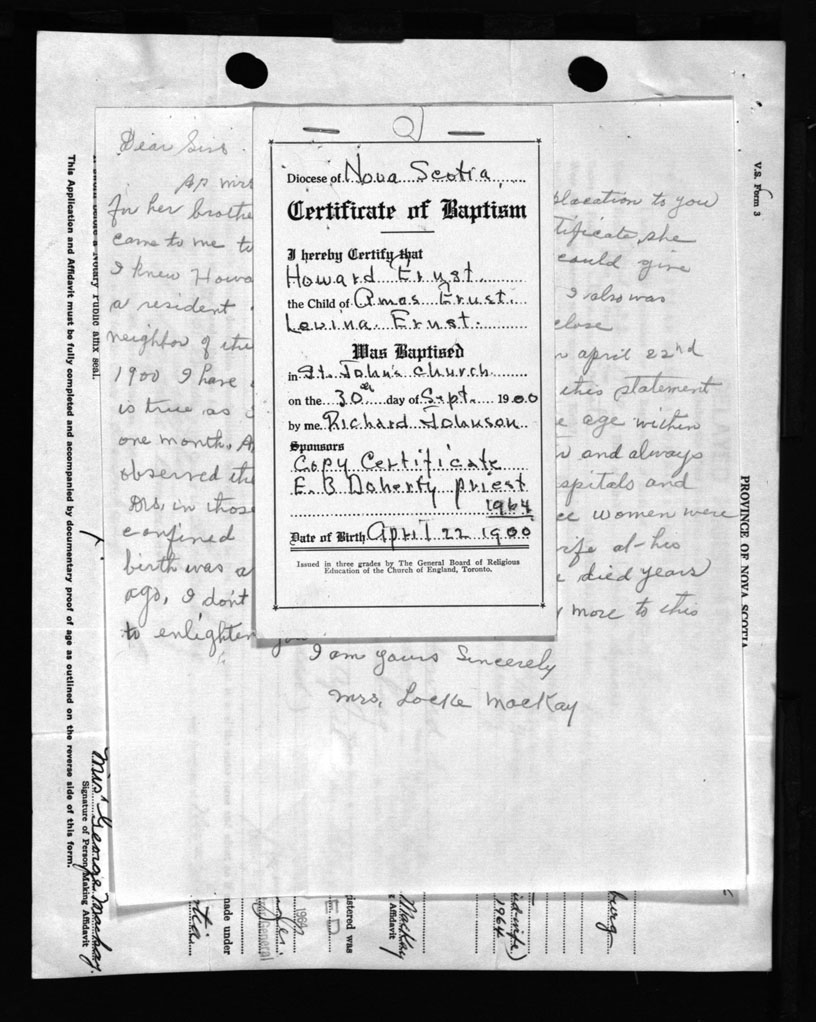 Diocese of Nova Scotia
Certificate of Baptism
I hereby Certify that
Howard Ernst
the Child of Amos Ernst
Levina Ernst
Was Baptised
in St. John's Church
on the 30th day of Sept. 1900
by me Richard Johnson
Sponsors
Copy Certificate
E. B Doherty priest
1964
Date of Birth April 22 1900
Issued in three grades by The General Board of Religious
Education of the Church of England, Toronto.
Dear Sirs
As mrs
placation to you
for her brothe
tificate, she
came to me to
could give
I knew Howa
I also was
a resident
close
neighbor of the
april 22nd
1900 I have
this statement
is true as
age within
one month. A
and always
observed the
spitals and
Drs, in those
women were
confined
ife at his
birth was a
died years
ago, I don't
more to this
to enlighten you
I am yours Sincerely
Mrs, Locke MacKay
V.S. Form 3
PROVINCE OF NOVA SCOTIA
This Application and Affidavit must be fully completed and accompanied by documentary proof of age as outlined on the reverse side of this form.
Notary Public affix seal.
Mrs George Mackay.
Signature of Person Making Affidavit
made under
tia
1964
General
gistered was
MacKay
Affidavit
id-wife)
1964
burg